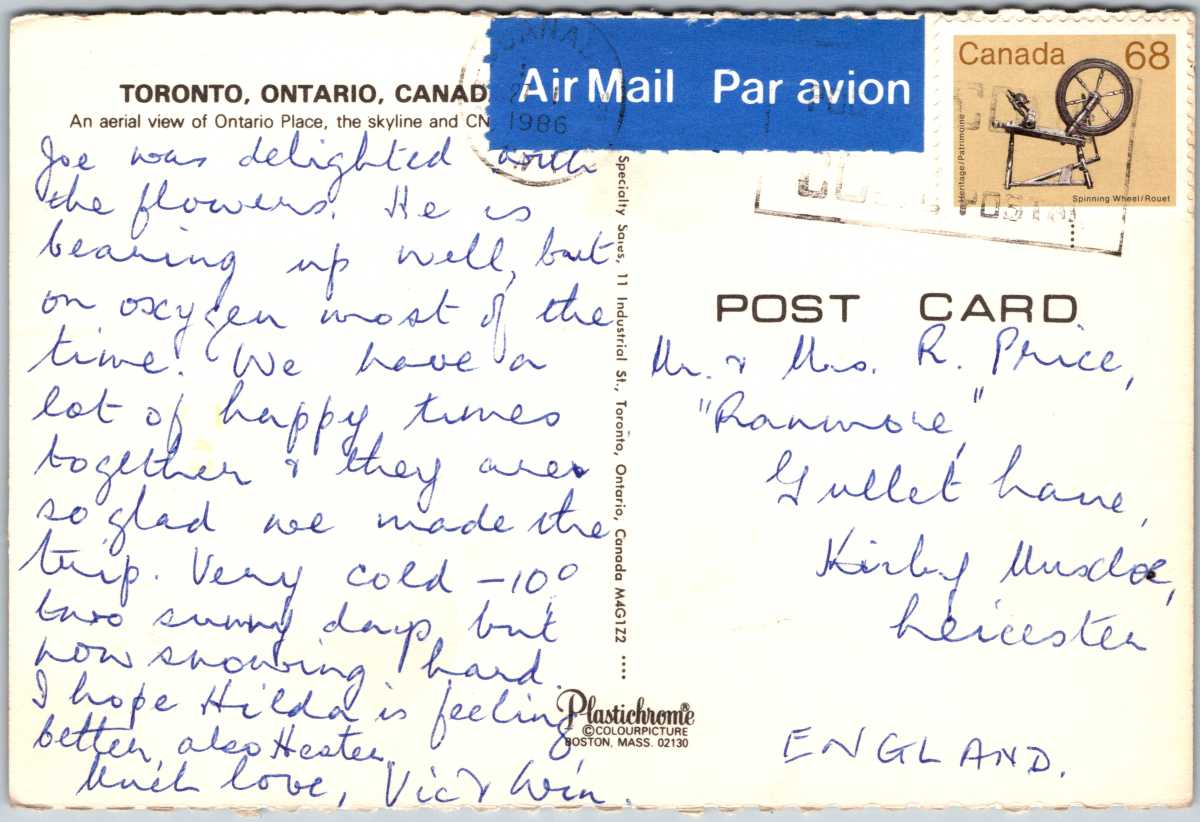 TORONTO, ONTARIO, CANAD
An aerial view of Ontario Place, the skyline and CN
Joe was delighted with
the flowers. He is
bearing up well, but
on oxygen most of the
time. We have a
lot of happy times
together & they are
so glad we made the
trip. Very cold -10°
two sunny days, but
now snowing hard.
I hope Hilda is feeling
better, also Hester.
Much love, Vic & Win.
Air Mail Par avion
1986
Canada 68
Heritage/Patrimoine
Spinning Wheel/Rouet
POST CARD
Mr. & Mrs. R. Price,
"Ranmore",
Gullet Lane,
Kirby Muxloe,
Leicester
ENGLAND.
Specialty Sales, 11 Industrial St., Toronto, Ontario, Canada M4G1Z2
Plastichrome®
©COLOURPICTURE
BOSTON, MASS. 02130